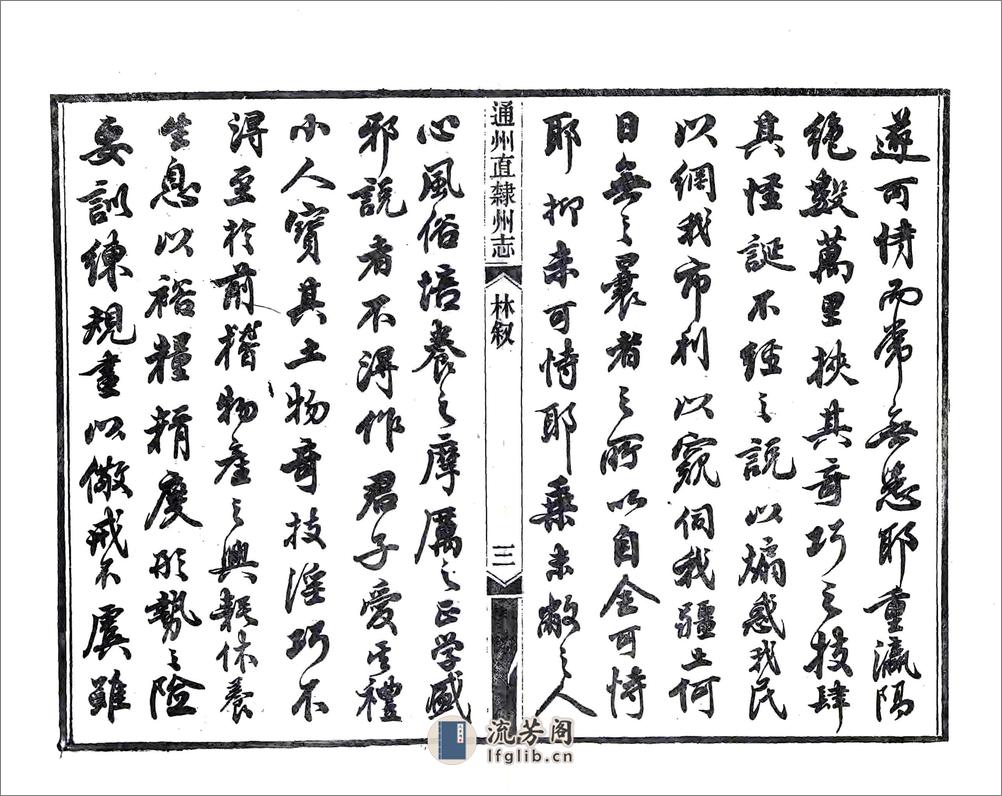 遂可恃而常無恙耶重瀛隔
絕數萬里挾其奇巧之技肆
其怪誕不經之說以煽惑我民
以網我市利以窺伺我疆土何
日無之曩者之所以自全可恃
耶抑未可恃耶乘未敝之人
通州直隸州志
林叙
三
心風俗培養之摩厲之正學盛
邪說者不得作君子愛其禮
小人寶其土物奇技淫巧不
得至於前稽物產之興耗休養
生息以裕糧糈度形勢之險
要訓練規畫以儆戒不虞雖
流芳阁
lfglib.cn